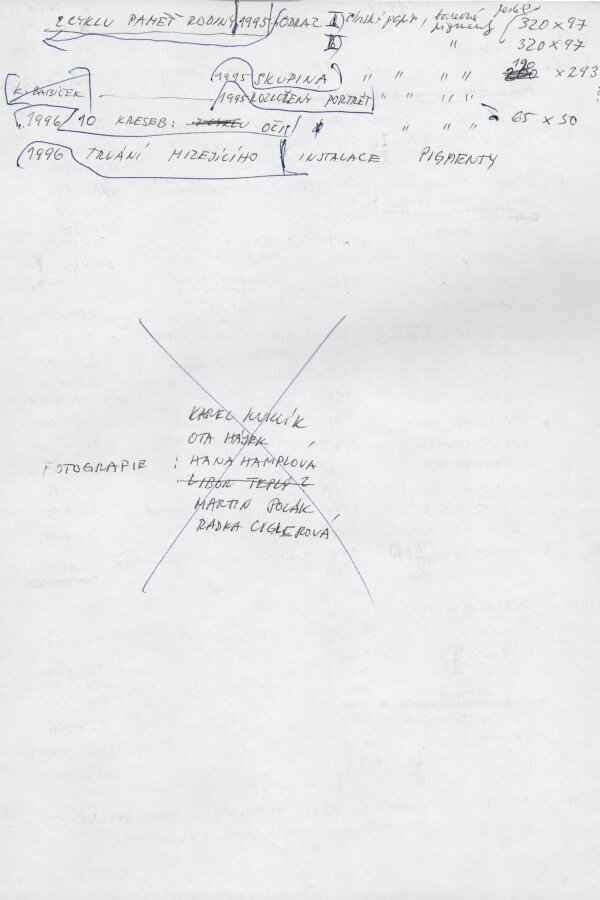 Z CYKLU PAMĚŤ RODINY 1995 ODRAZ I) čínský papír, barevné pigmenty 320 x 97
II) " 320 x 97
1995 SKUPINA " " " " 190 x 293
K. BABIČEK 1995 ROZLOŽENÝ PORTRÉT " " " "
1996 10 KRESEB: Z CYKLU OČIS " " " 65 x 50
1996 TRVÁNÍ MIZEJÍCÍHO INSTALACE PIGMENTY
KAREL KUKLÍK
OTA HÁJEK
FOTOGRAFIE : HANA HAMPLOVÁ
LIBOR TEPLÝ 2
MARTIN POLÁK
RADKA CIGLEROVÁ